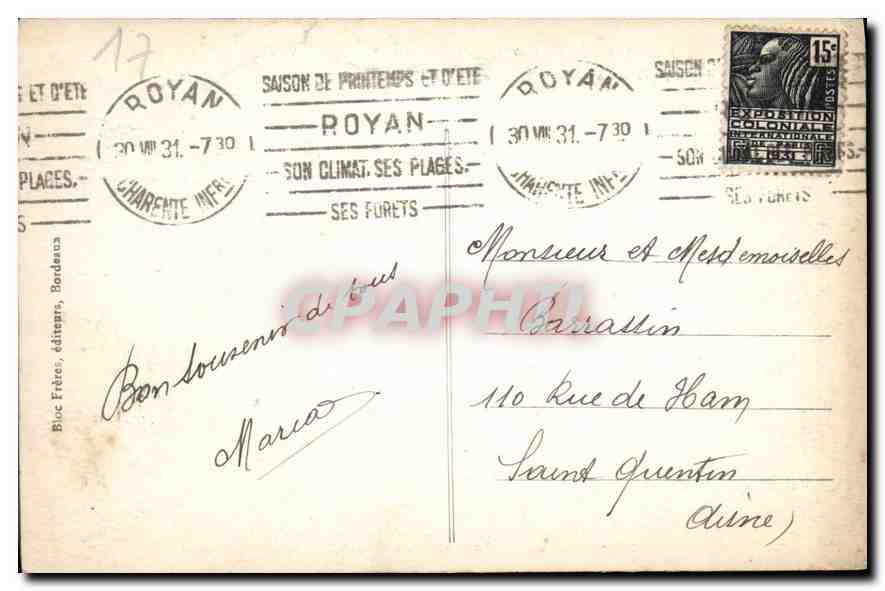 17
S ET D'ETE
N
PLAGES.-
S
ROYAN
30 VIII 31. -7 30
CHARENTE INFRE
SAISON DE PRINTEMPS ET D'ETE
ROYAN
SON CLIMAT. SES PLAGES.
SES FORETS
ROYAN
30 VIII 31. -7 30
CHARENTE INFRE
SAISON
SON
SES FORETS
15c
POSTES
EXPOSITION
COLONIALE
INTERNATIONALE
1931
Bloc Frères, éditeurs, Bordeaux
Bon souvenir de tous
Maria
Monsieur et Mesdemoiselles
Barrassin
110 Rue de Ham
Saint Quentin
(Aisne)
CPAPHIL